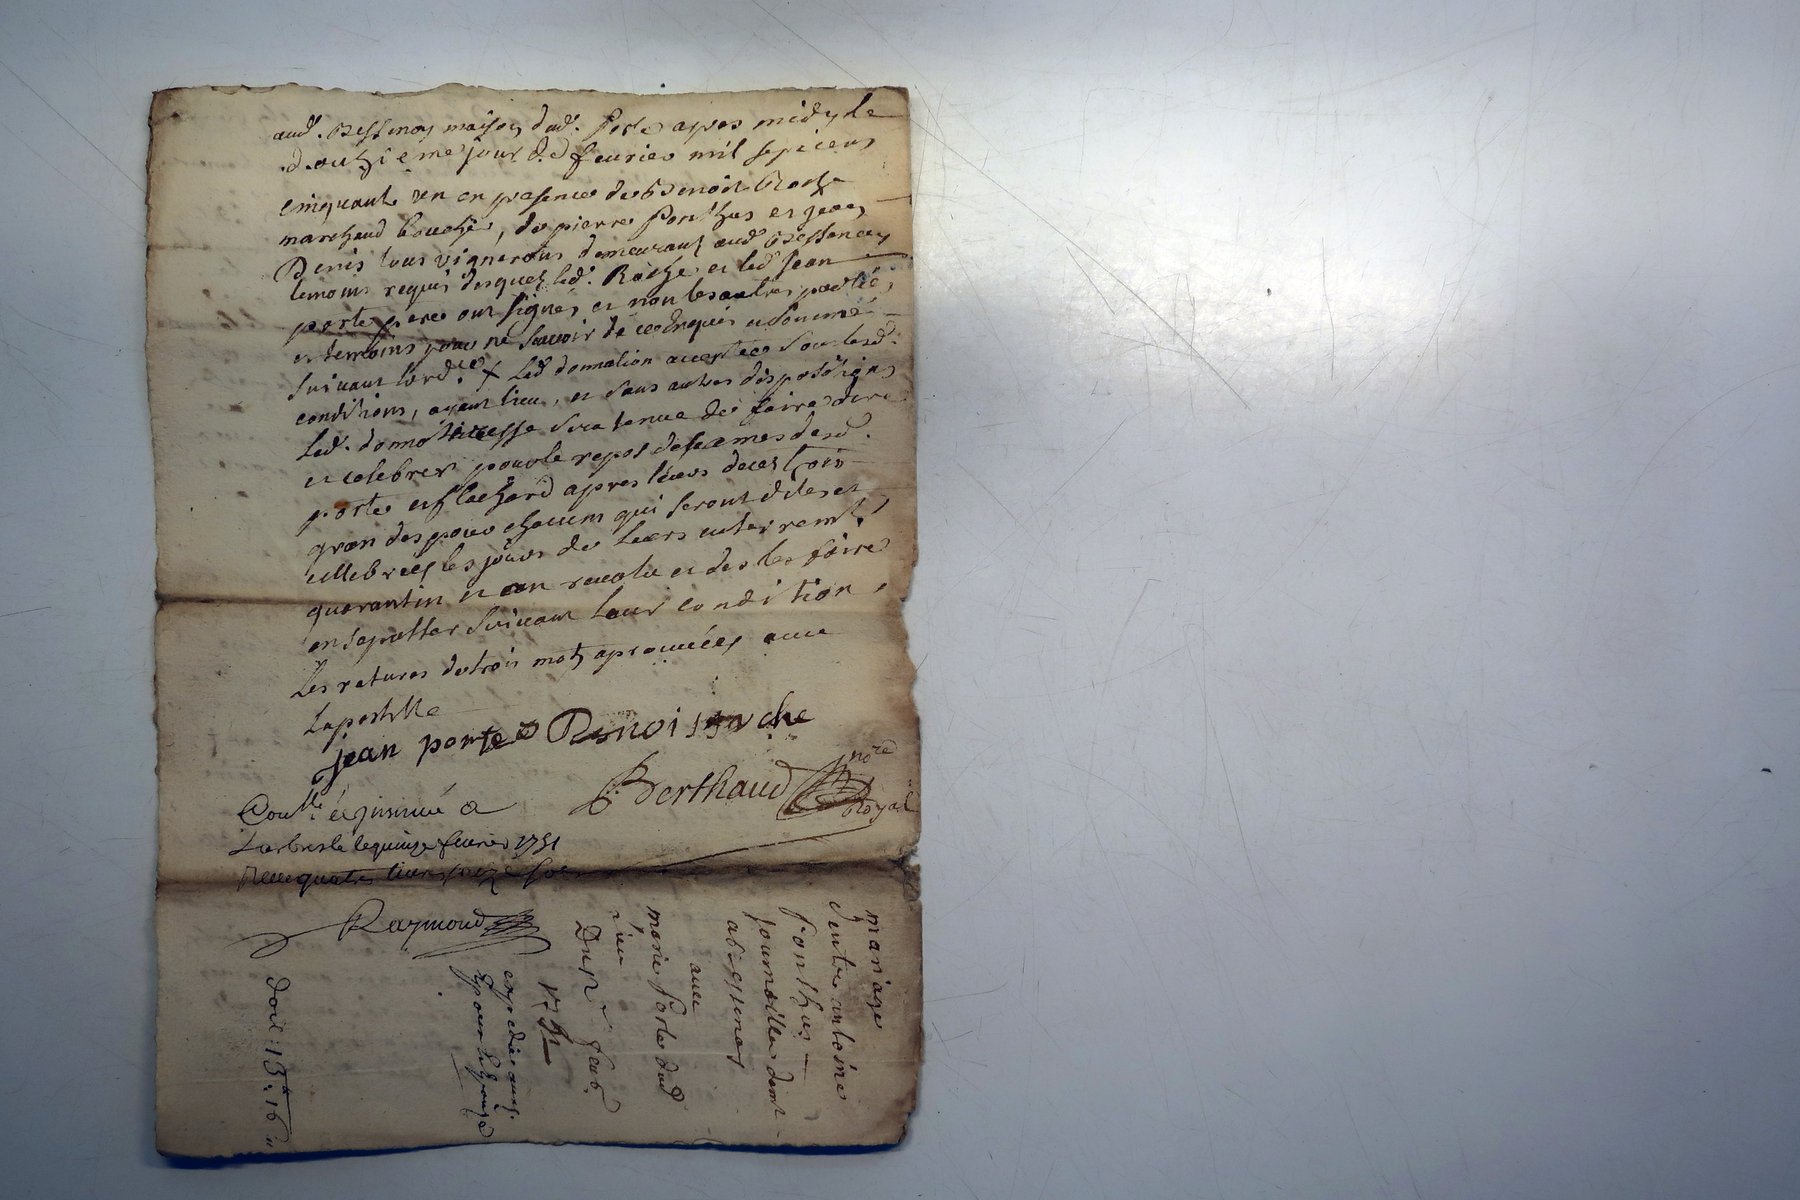 aud. Bessenay maison dud. Porte apres midy le
douzieme jour de fevrier mil sept cens
cinquante un en presence de Benoit Roche
marchand bouché, de pierre Ponthus et jean
Denis tous vignerons demeurant aud Bessenay
temoins requis desquels led. Roche et led jean
porte pere ont signés et non les autres parties
et temoins pour ne savoir de ce enquis et sommé
suivant l'ord.ce X Lad donnation acceptée sous lesd.
conditions, ayant lieu, et sans autres dispositions
lad. donnatricesse sera tenue de faire dire
et celebrer pour le repos des ames desd.
porte et flachard apres leurs deces trois
grandes pour chacun qui seront dites et
cellebrées les jours de leurs enterremt.
quarantin et an revolu et des les faire
ensepulter suivant leur condition
Les ratures de trois mots aprouvées avec
Lapostille
jean porte Benoist roche
Berthaud no.re
Royal
Con.lé et jnsinué a
Larbresle le quinze fevrier 1751
Recu quatre livres seize sols
Raymond
mariage
d'entre antoine
Ponthus
journallier demt
a
avec
marie Porte dud
lieu
Du 12 feb.
1751
expediée aux
Epoux
doit 13 16